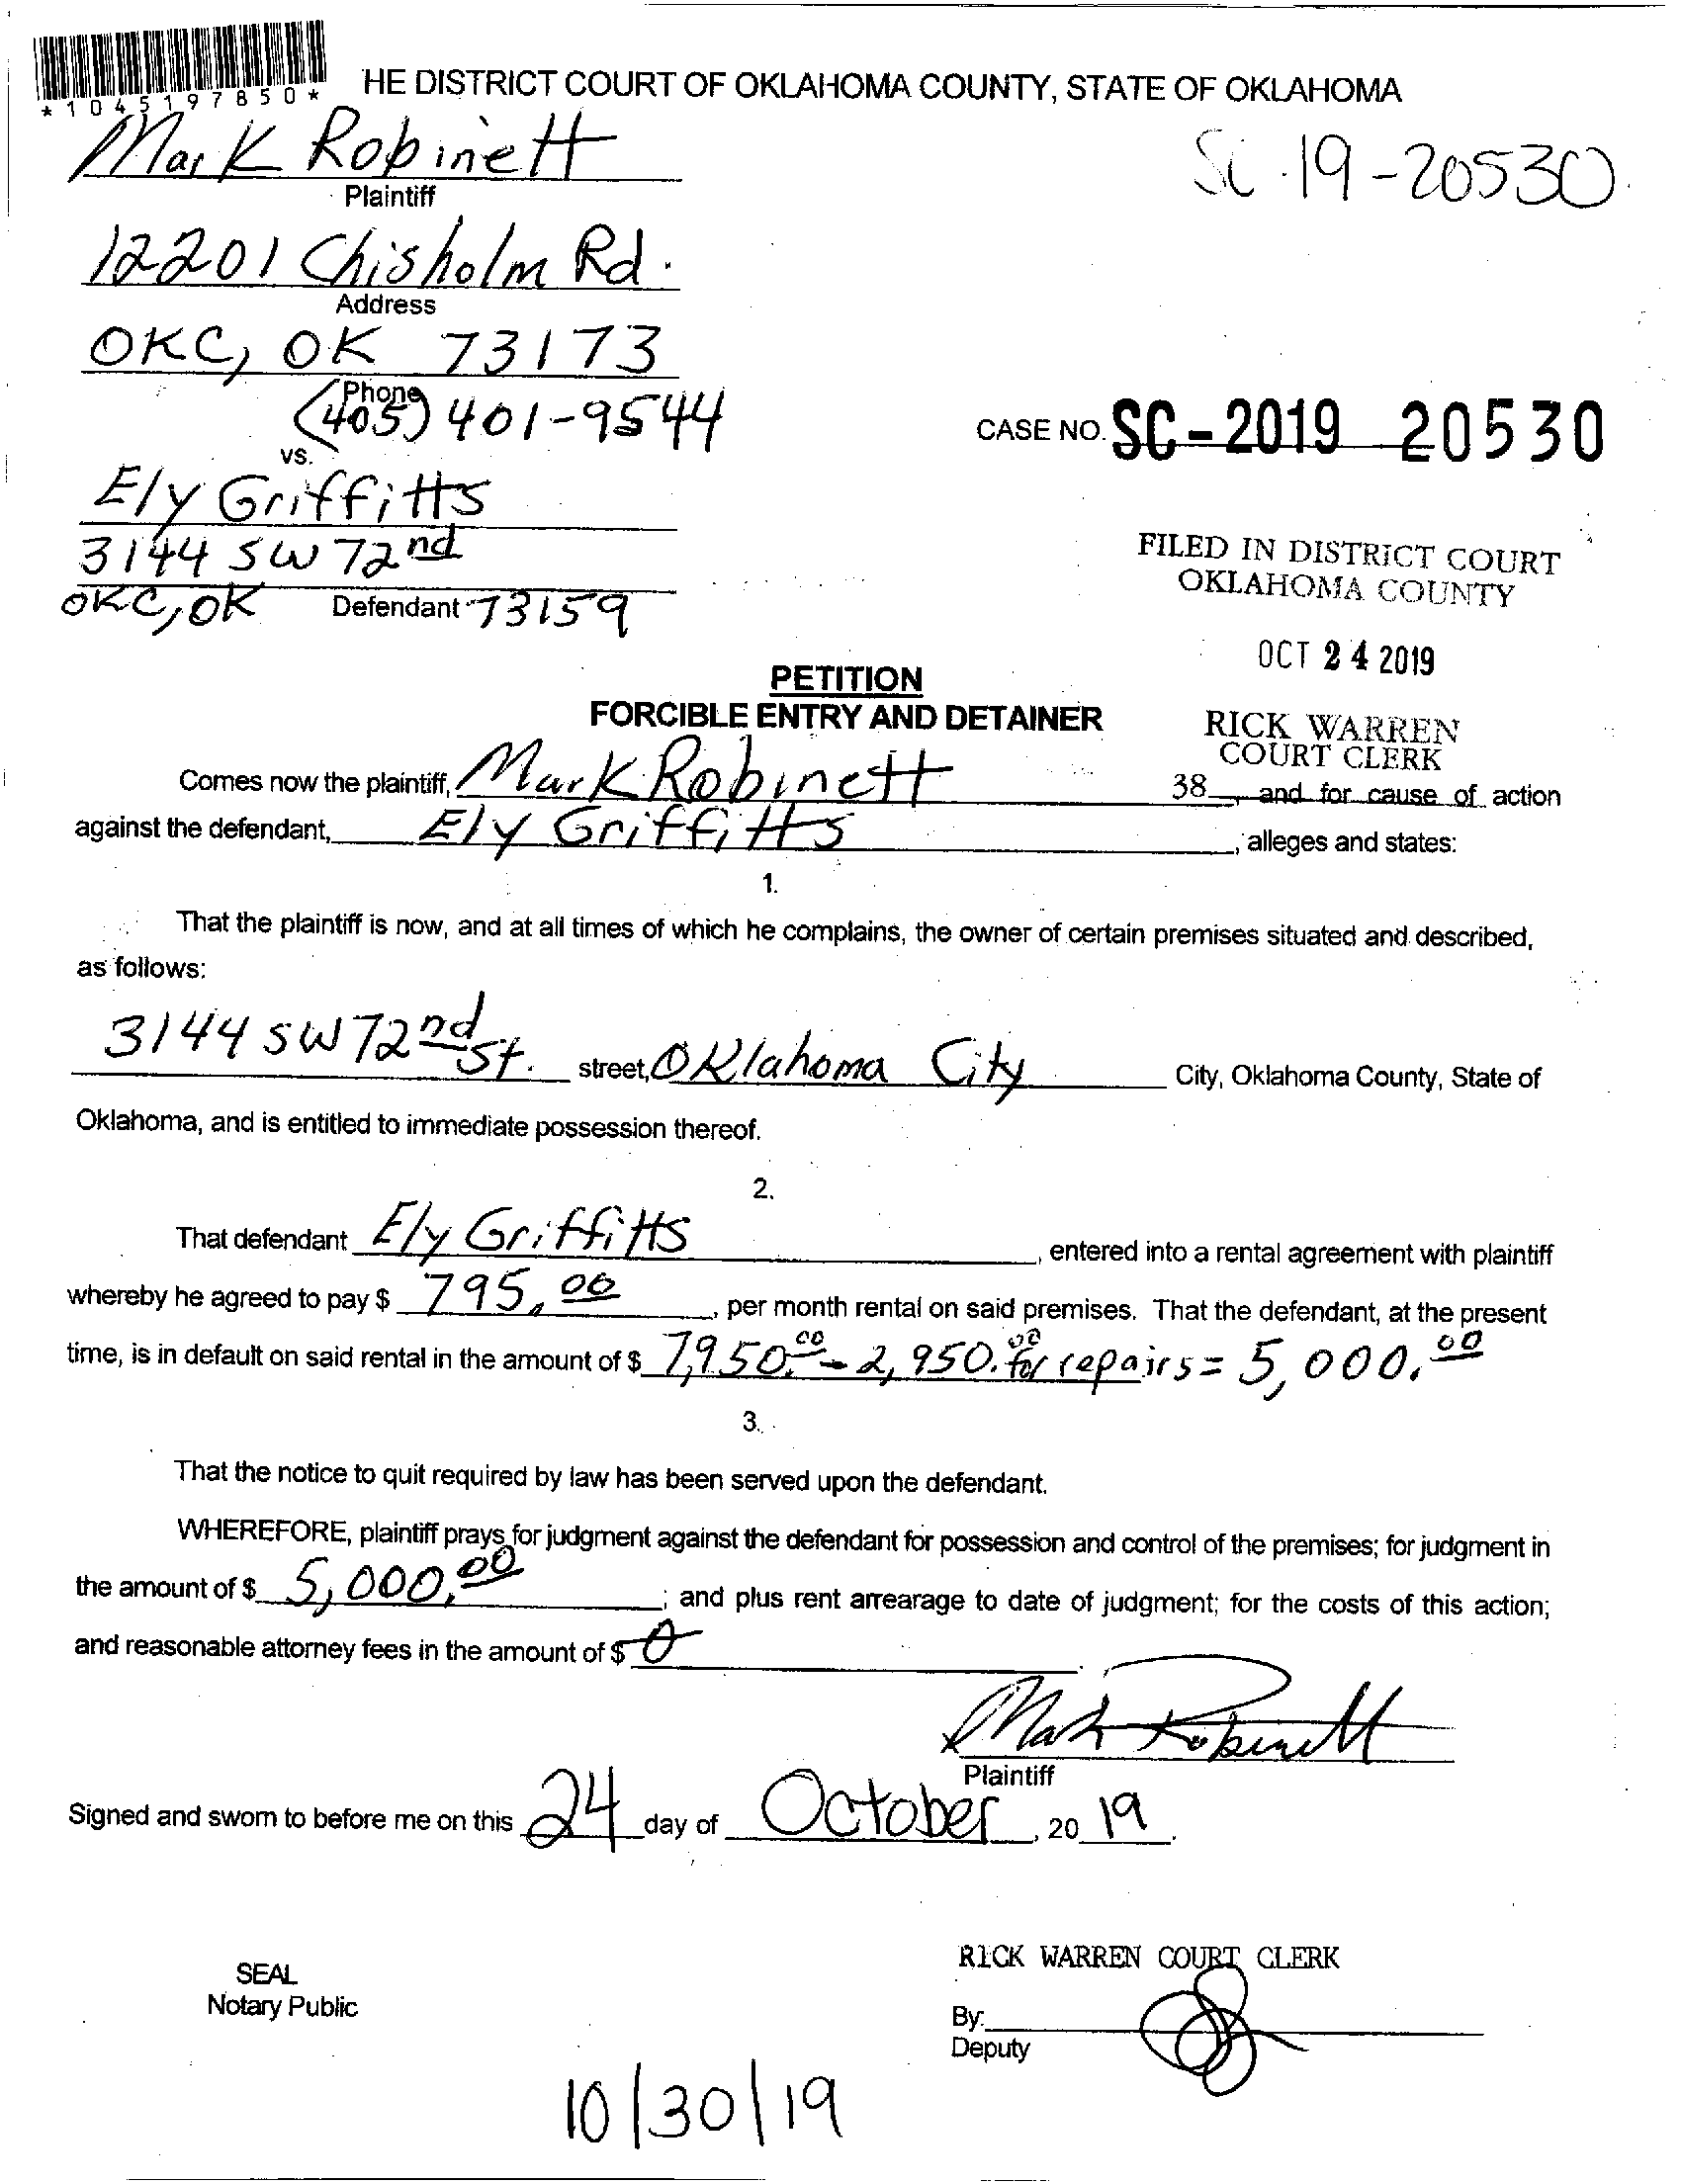 *1045197850*
HE DISTRICT COURT OF OKLAHOMA COUNTY, STATE OF OKLAHOMA
Mark Robinett
SC-19-20530
Plaintiff
12201 Chisholm Rd.
Address
OKC, OK 73173
Phone
(405) 401-9544
CASE NO. SC-2019 20530
vs.
Ely Griffitts
3144 SW 72nd
OKC, OK Defendant 73159
FILED IN DISTRICT COURT
OKLAHOMA COUNTY
OCT 24 2019
RICK WARREN
COURT CLERK
38
PETITION
FORCIBLE ENTRY AND DETAINER
Comes now the plaintiff, Mark Robinett, and for cause of action
against the defendant, Ely Griffitts, alleges and states:
1.
That the plaintiff is now, and at all times of which he complains, the owner of certain premises situated and described,
as follows:
3144 SW 72nd St. street, Oklahoma City City, Oklahoma County, State of
Oklahoma, and is entitled to immediate possession thereof.
2.
That defendant Ely Griffitts, entered into a rental agreement with plaintiff
whereby he agreed to pay $ 795.00, per month rental on said premises. That the defendant, at the present
time, is in default on said rental in the amount of $ 7,950.00 - 2,950.00 for repairs = 5,000.00
3.
That the notice to quit required by law has been served upon the defendant.
WHEREFORE, plaintiff prays for judgment against the defendant for possession and control of the premises; for judgment in
the amount of $ 5,000.00; and plus rent arrearage to date of judgment; for the costs of this action;
and reasonable attorney fees in the amount of $ 0.
Mark Robinett
Plaintiff
Signed and sworn to before me on this 24 day of October, 2019.
RICK WARREN COURT CLERK
SEAL
Notary Public
By:
Deputy
10/30/19